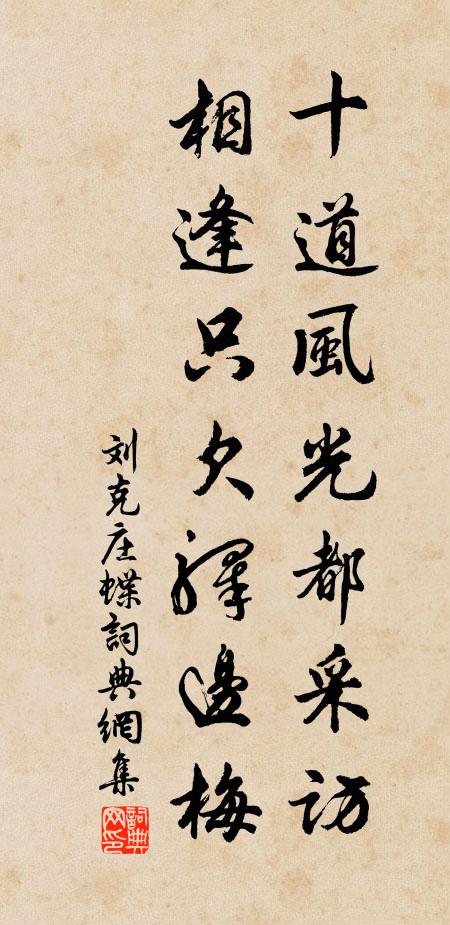 十道風光都采訪
相逢只欠驛邊梅
刘克庄蝶詞典網集
詞典网印